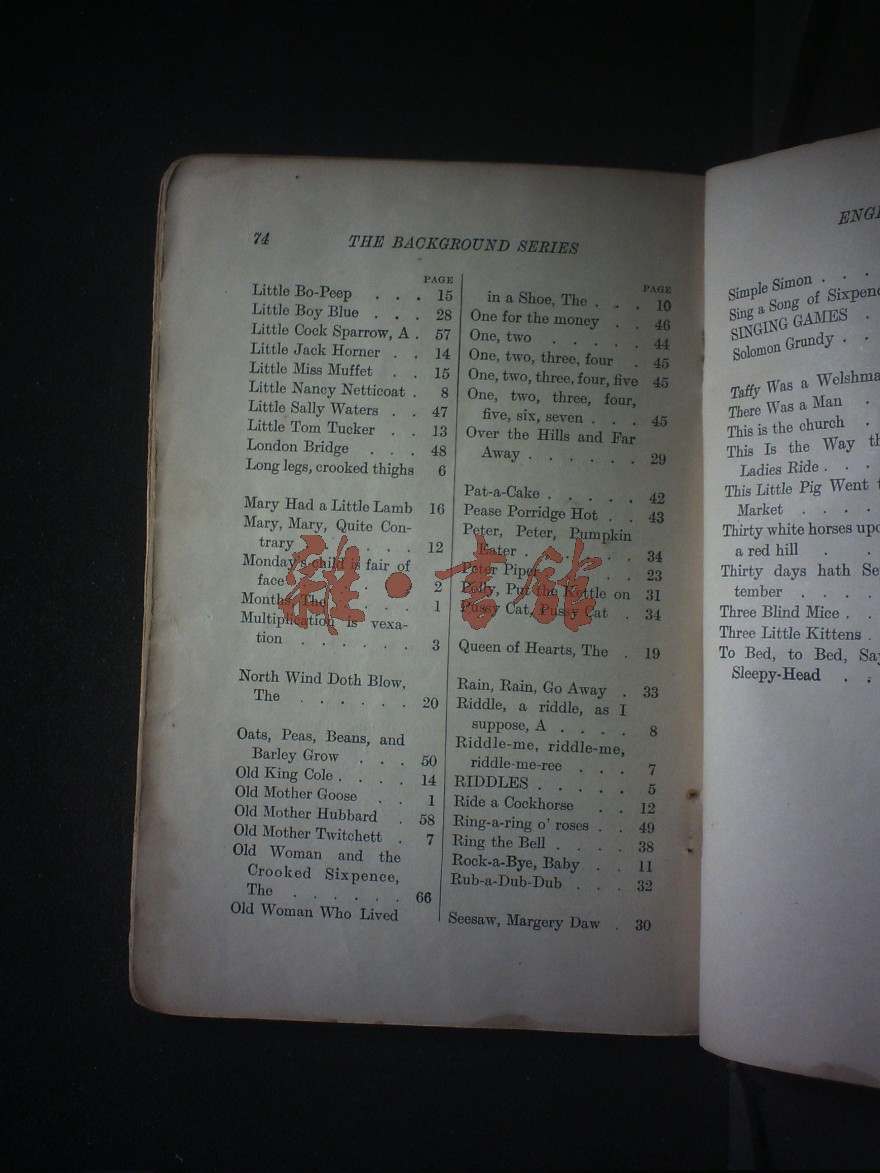 74 THE BACKGROUND SERIES
PAGE
Little Bo-Peep . . . 15
Little Boy Blue . . . 28
Little Cock Sparrow, A . 57
Little Jack Horner . . 14
Little Miss Muffet . . 15
Little Nancy Netticoat . 8
Little Sally Waters . . 47
Little Tom Tucker . . 13
London Bridge . . . 48
Long legs, crooked thighs 6
Mary Had a Little Lamb 16
Mary, Mary, Quite Con-
trary . . . . 12
Monday's child is fair of
face . . . . 2
Months, The . . . . 1
Multiplication is vexa-
tion . . . . . . 3
North Wind Doth Blow,
The . . . . . . 20
Oats, Peas, Beans, and
Barley Grow . . . 50
Old King Cole . . . . 14
Old Mother Goose . . 1
Old Mother Hubbard . 58
Old Mother Twitchett . 7
Old Woman and the
Crooked Sixpence,
The . . . . . . 66
Old Woman Who Lived
PAGE
in a Shoe, The . . . 10
One for the money . . 46
One, two . . . . . 44
One, two, three, four . 45
One, two, three, four, five 45
One, two, three, four,
five, six, seven . . . 45
Over the Hills and Far
Away . . . . . . 29
Pat-a-Cake . . . . . 42
Pease Porridge Hot . . 43
Peter, Peter, Pumpkin
Eater . . . . . . 34
Peter Piper . . . . 23
Polly, Put the Kettle on 31
Pussy Cat, Pussy Cat . 34
Queen of Hearts, The . 19
Rain, Rain, Go Away . 33
Riddle, a riddle, as I
suppose, A . . . . 8
Riddle-me, riddle-me,
riddle-me-ree . . . 7
RIDDLES . . . . . 5
Ride a Cockhorse . . 12
Ring-a-ring o' roses . . 49
Ring the Bell . . . . 38
Rock-a-Bye, Baby . . 11
Rub-a-Dub-Dub . . . 32
Seesaw, Margery Daw . 30
雜·書館
Simple Simon . . .
Sing a Song of
SINGING GAMES .
Solomon Grundy . .
Taffy Was a
There Was a Man .
This is the church .
This Is the Way
Ladies Ride . . .
This Little Pig Went
Market . . . .
Thirty white horses
a red hill . .
Thirty days hath
tember . . . .
Three Blind Mice . .
Three Little Kittens .
To Bed, to Bed,
Sleepy-Head . .